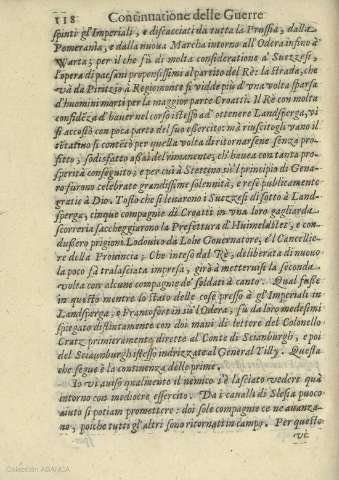 118 Continuatione delle Guerre
spinti gl'Imperiali, e discacciati da tutta la Prussia, dalla
Pomerania, e dalla nuoua Marcha intorno all'Odera insino à
Warta; per il che fù di molta consideratione a' Suezzesi,
l'opera di paesani propensissimi al partito del Rè: la strada, che
và da Piritzo à Regiomonte si vidde più d'una volta sparsa
d'huomini morti per la maggior parte Croatti. Il Rè con molta
confidēza d'hauer nel corso istesso ad ottenere Landsperga, vi
si accostò con poca parte del suo essercito: mà riuscitogli vano il
tētatiuo si contētò per quella volta di ritornarsene senza pro-
fitto, sodisfatto assai del rimanente, chl hauea con tanta pro-
sperità conseguito; e per ciò à Stettino nè'l principio di Gena-
ro furono celebrate grandissime solennità, e rese publicamente
gratie à Dio. Tosto che si leuarono i Suezzesi di sotto à Land-
sperga, cinque compagnie di Croatti in vna loro gagliarda
scorreria saccheggiarono la Prefettura d'Huimelstet, e con-
dussero prigioni Lodouico da Lohe Gouernatore, e'l Cancellie-
re della Prouincia; Che inteso dal Rè, deliberata di nuouo
la poco fà tralasciata impresa, girò à mettteruisi la seconda
volta con alcune compagnie de' soldati à canto. Qual fusse
in questo mentre lo stato delle cose presso à gl'Imperiali in
Landsperga, e Francofort in sù l'Odera, fù da loro medesimi
spiegato distintamente con doi mani di lettere del Colonello
Cratz primieramente dirette al Conte di Scianburgh, e poi
del Sciaumburgh istesso indrizzate al General Tilly. Questa
che segue è la continenza delle prime.
Io vi auiso qualmente il nemico s'è lasciato vedere quà
intorno con mediocre essercito. Da i caualli di Slesia puoco
aiuto si potiam promettere: doi sole compagnie ce ne auanza-
no, poiche tutti gl'altri sono ricornati in campo. Per questo
vi
Colección ABANCA